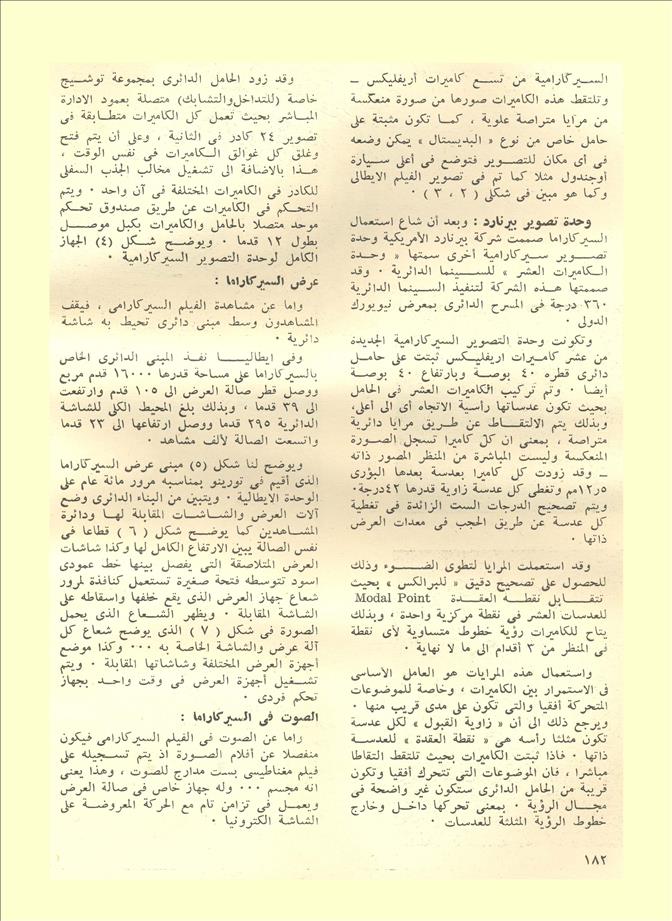 السيركارامية من تسع كاميرات أريفليكس ــ
وتلتقط هذه الكاميرات صورها من صورة منعكسة
من مرايا متراصة علوية ، كما تكون مثبتة على
حامل خاص من نوع « البديستال » يمكن وضعه
فى أى مكان للتصوير فتوضع فى أعلى سيارة
أوجندول مثلا كما تم فى تصوير الفيلم الايطالى
وكما هو مبين فى شكلى ( ٢ ، ٣ ) ٠
وحدة تصوير بيرنارد : وبعد أن شاع استعمال
السيركاراما صممت شركة بيرنارد الأمريكية وحدة
تصوير سيركارامية أخرى سمتها « وحدة
الكاميرات العشر » للسينما الدائرية ٠ وقد
صممتها هذه الشركة لتنفيذ السينما الدائرية
٣٦٠ درجة فى المسرح الدائرى بمعرض نيويورك
الدولى ٠
وتكونت وحدة التصوير السيركارامية الجديدة
من عشر كاميرات اريفليكس ثبتت على حامل
دائرى قطره ٤٠ بوصة وبارتفاع ٤٠ بوصة
أيضا ٠ وتم تركيب الكاميرات العشر فى الحامل
بحيث تكون عدساتها رأسية الاتجاه أى الى أعلى،
وبذلك يتم الالتقاط عن طريق مرايا دائرية
متراصة ، بمعنى ان كل كاميرا تسجل الصورة
المنعكسة وليست المباشرة من المنظر المصور ذاته
ــ وقد زودت كل كاميرا بعدسة بعدها البؤرى
١٢٫٥م وتغطى كل عدسة زاوية قدرها ٤٢درجة٠
ويتم تصحيح الدرجات الست الزائدة فى تغطية
كل عدسة عن طريق الحجب فى معدات العرض
ذاتها ٠
وقد استعملت المرايا لتطوى الضوء وذلك
للحصول على تصحيح دقيق « للبرالكس » بحيث
تتقابل نقطه العقدة Modal Point
للعدسات العشر فى نقطة مركزية واحدة ، وبذلك
يتاح للكاميرات رؤية خطوط متساوية لأى نقطة
فى المنظر من ٣ أقدام الى ما لا نهاية ٠
واستعمال هذه المرايات هو العامل الأساسى
فى الاستمرار بين الكاميرات ، وخاصة للموضوعات
المتحركة أفقيا والتى تكون على مدى قريب منها ٠
ويرجع ذلك الى أن « زاوية القبول » لكل عدسة
تكون مثلثا رأسه هى « نقطة العقدة » للعدسة
ذاتها ٠ فاذا ثبتت الكاميرات بحيث تلتقط التقاطا
مباشرا ، فان الموضوعات التى تتحرك أفقيا وتكون
قريبة من الحامل الدائرى ستكون غير واضحة فى
مجال الرؤية ٠ بمعنى تحركها داخل وخارج
خطوط الرؤية المثلثة للعدسات ٠
وقد زود الحامل الدائرى بمجموعة توشيج
خاصة (للتداخل والتشابك) متصلة بعمود الادارة
المباشر بحيث تعمل كل الكاميرات متطابقة فى
تصوير ٢٤ كادر فى الثانية ، وعلى أن يتم فتح
وغلق كل غوالق الكاميرات فى نفس الوقت ،
هذا بالاضافة الى تشغيل مخالب الجذب السفلى
للكادر فى الكاميرات المختلفة فى آن واحد ٠ ويتم
التحكم فى الكاميرات عن طريق صندوق تحكم
موحد متصلا بالحامل والكاميرات بكبل موصل
بطول ١٢ قدما ٠ ويوضح شكل (٤) الجهاز
الكامل لوحدة التصوير السيركارامية ٠
عرض السيركاراما :
واما عن مشاهدة الفيلم السيركارامى ، فيقف
المشاهدون وسط مبنى دائرى تحيط به شاشة
دائرية ٠
وفى ايطاليا نفذ المبنى الدائرى الخاص
بالسيركاراما على مساحة قدرها ١٦٠٠٠ قدم مربع
ووصل قطر صالة العرض الى ١٠٥ قدم وارتفعت
الى ٣٩ قدما ، وبذلك بلغ المحيط الكلى للشاشة
الدائرية ٢٩٥ قدما ووصل ارتفاعها الى ٢٣ قدما
واتسعت الصالة لألف مشاهد ٠
ويوضح لنا شكل (٥) مبنى عرض السيركاراما
الذى أقيم فى تورينو بمناسبه مرور مائة عام على
الوحدة الايطالية ٠ ويتبين من البناء الدائرى وضع
آلات العرض والشاشات المقابلة لها ودائرة
المشاهدين كما يوضح شكل ( ٦ ) قطاعا فى
نفس الصالة يبين الارتفاع الكامل لها وكذا شاشات
العرض المتلاصقة التى يفصل بينها خط عمودى
اسود تتوسطه فتحة صغيرة تستعمل كنافذة لمرور
شعاع جهاز العرض الذى يقع خلفها واسقاطه على
الشاشة المقابلة ٠ ويظهر الشعاع الذى يحمل
الصورة فى شكل ( ٧ ) الذى يوضح شعاع كل
آلة عرض والشاشة الخاصة به ٠٠٠ وكذا موضع
أجهزة العرض المختلفة وشاشاتها المقابلة ٠ ويتم
تشغيل أجهزة العرض فى وقت واحد بجهاز
تحكم فردى ٠
الصوت فى السيركاراما :
راما عن الصوت فى الفيلم السيركارامى فيكون
منفصلا عن أفلام الصورة اذ يتم تسجيله على
فيلم مغناطيسى بست مدارج للصوت ، وهذا يعنى
انه مجسم ٠٠٠ وله جهاز خاص فى صالة العرض
ويعمل فى تزامن تام مع الحركة المعروضة على
الشاشة الكترونيا ٠
١٨٢